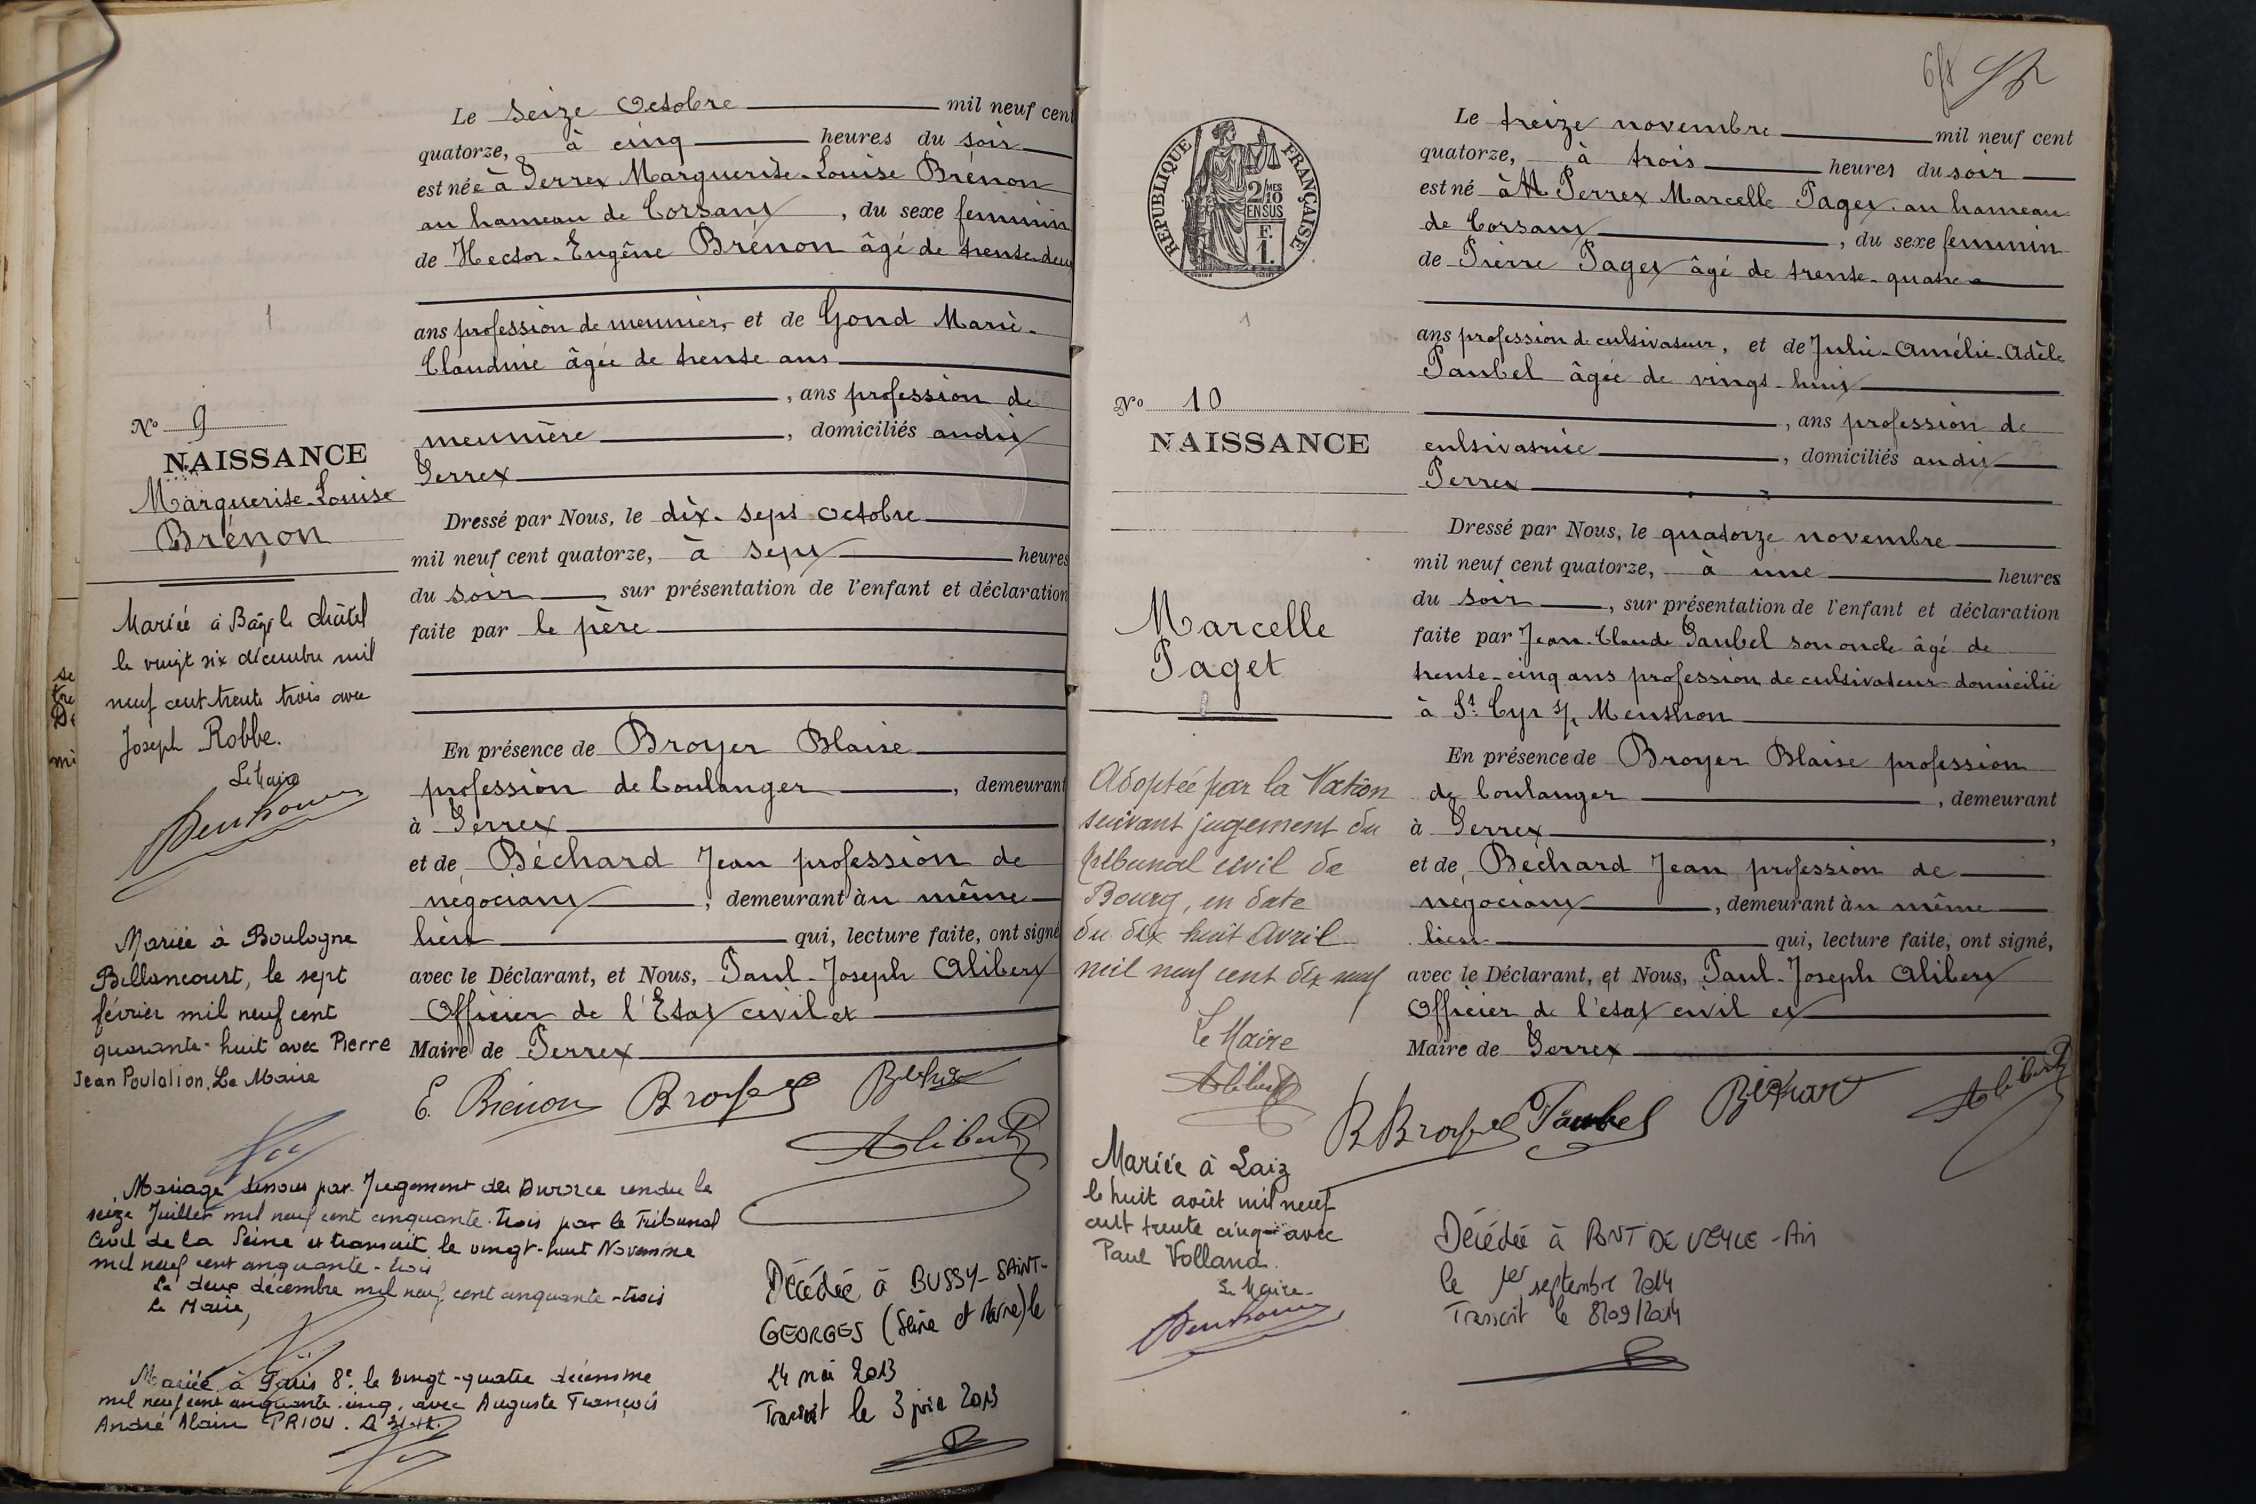 Le seize Octobre mil neuf cent
quatorze, à cinq heures du soir
est née à Perrex Marguerite-Louise Brénon
au hameau de Corsant, du sexe feminin
de Hector-Eugêne Brénon âgé de trente-deux
ans profession de meunier, et de Gond Marie-
Claudine âgée de trente ans
, ans profession de
meunière, domiciliés audit
Perrex
Dressé par Nous, le dix-sept octobre
mil neuf cent quatorze, à sept heures
du soir sur présentation de l'enfant et déclaration
faite par le père
En présence de Broyer Blaise
profession de boulanger, demeurant
à Perrex
et de Béchard Jean profession de
négociant, demeurant au même
lieu qui, lecture faite, ont signé
avec le Déclarant, et Nous, Paul-Joseph Alibert
Officier de l'Etat civil et
Maire de Perrex
E. Brénon Broyer Béchard
Alibert
No 9
NAISSANCE
Marguerite-Louise
Brénon
Mariée à Bâgé le Châtel
le vingt six décembre mil
neuf cent trente trois avec
Joseph Robbe.
Le Maire
Mariée à Boulogne
Billancourt, le sept
février mil neuf cent
quarante-huit avec Pierre
Jean Poulalion. Le Maire
Mariage dissous par Jugement de Divorce rendu le
seize Juillet mil neuf cent cinquante-trois par le Tribunal
Civil de la Seine et transcrit le vingt-huit Novembre
mil neuf cent cinquante-trois
Le deux décembre mil neuf cent cinquante-trois
Le Maire,
Mariée à Paris 8e le vingt-quatre décembre
mil neuf cent cinquante-cinq, avec Auguste François
André Alain PRIOU.
Décédée à BUSSY-SAINT-
GEORGES (Seine et Marne) le
24 mai 2013
Transcrit le 3 juin 2013
se
tre
De
mi
RÉPUBLIQUE FRANÇAISE
2/10 MES
EN SUS
F.
1.
Le treize novembre mil neuf cent
quatorze, à trois heures du soir
est né à Perrex Marcelle Paget au hameau
de Corsant, du sexe feminin
de Pierre Paget âgé de trente-quatre
ans profession de cultivateur, et de Julie-Amélie-Adèle
Taubel âgée de vingt-huit
, ans profession de
cultivatrice, domiciliés audit
Perrex
Dressé par Nous, le quatorze novembre
mil neuf cent quatorze, à une heures
du soir, sur présentation de l'enfant et déclaration
faite par Jean-Claude Taubel son oncle âgé de
trente-cinq ans profession de cultivateur domicilié
à St Cyr s/ Menthon
En présence de Broyer Blaise profession
de boulanger, demeurant
à Perrex,
et de Béchard Jean profession de
négociant, demeurant au même
lieu qui, lecture faite, ont signé,
avec le Déclarant, et Nous, Paul-Joseph Alibert
Officier de l'état civil et
Maire de Perrex
B Broyer Taubel Béchard Alibert
No 10
NAISSANCE
Marcelle
Paget
Adoptée par la Nation
suivant jugement du
tribunal civil de
Bourg, en date
du dix huit Avril
mil neuf cent dix neuf
Le Maire
Alibert
Mariée à Laiz
le huit août mil neuf
cent trente cinq avec
Paul Volland.
Le Maire
Décédée à PONT DE VEYLE - Ain
le 1er septembre 2014
Transcrit le 8/09/2014